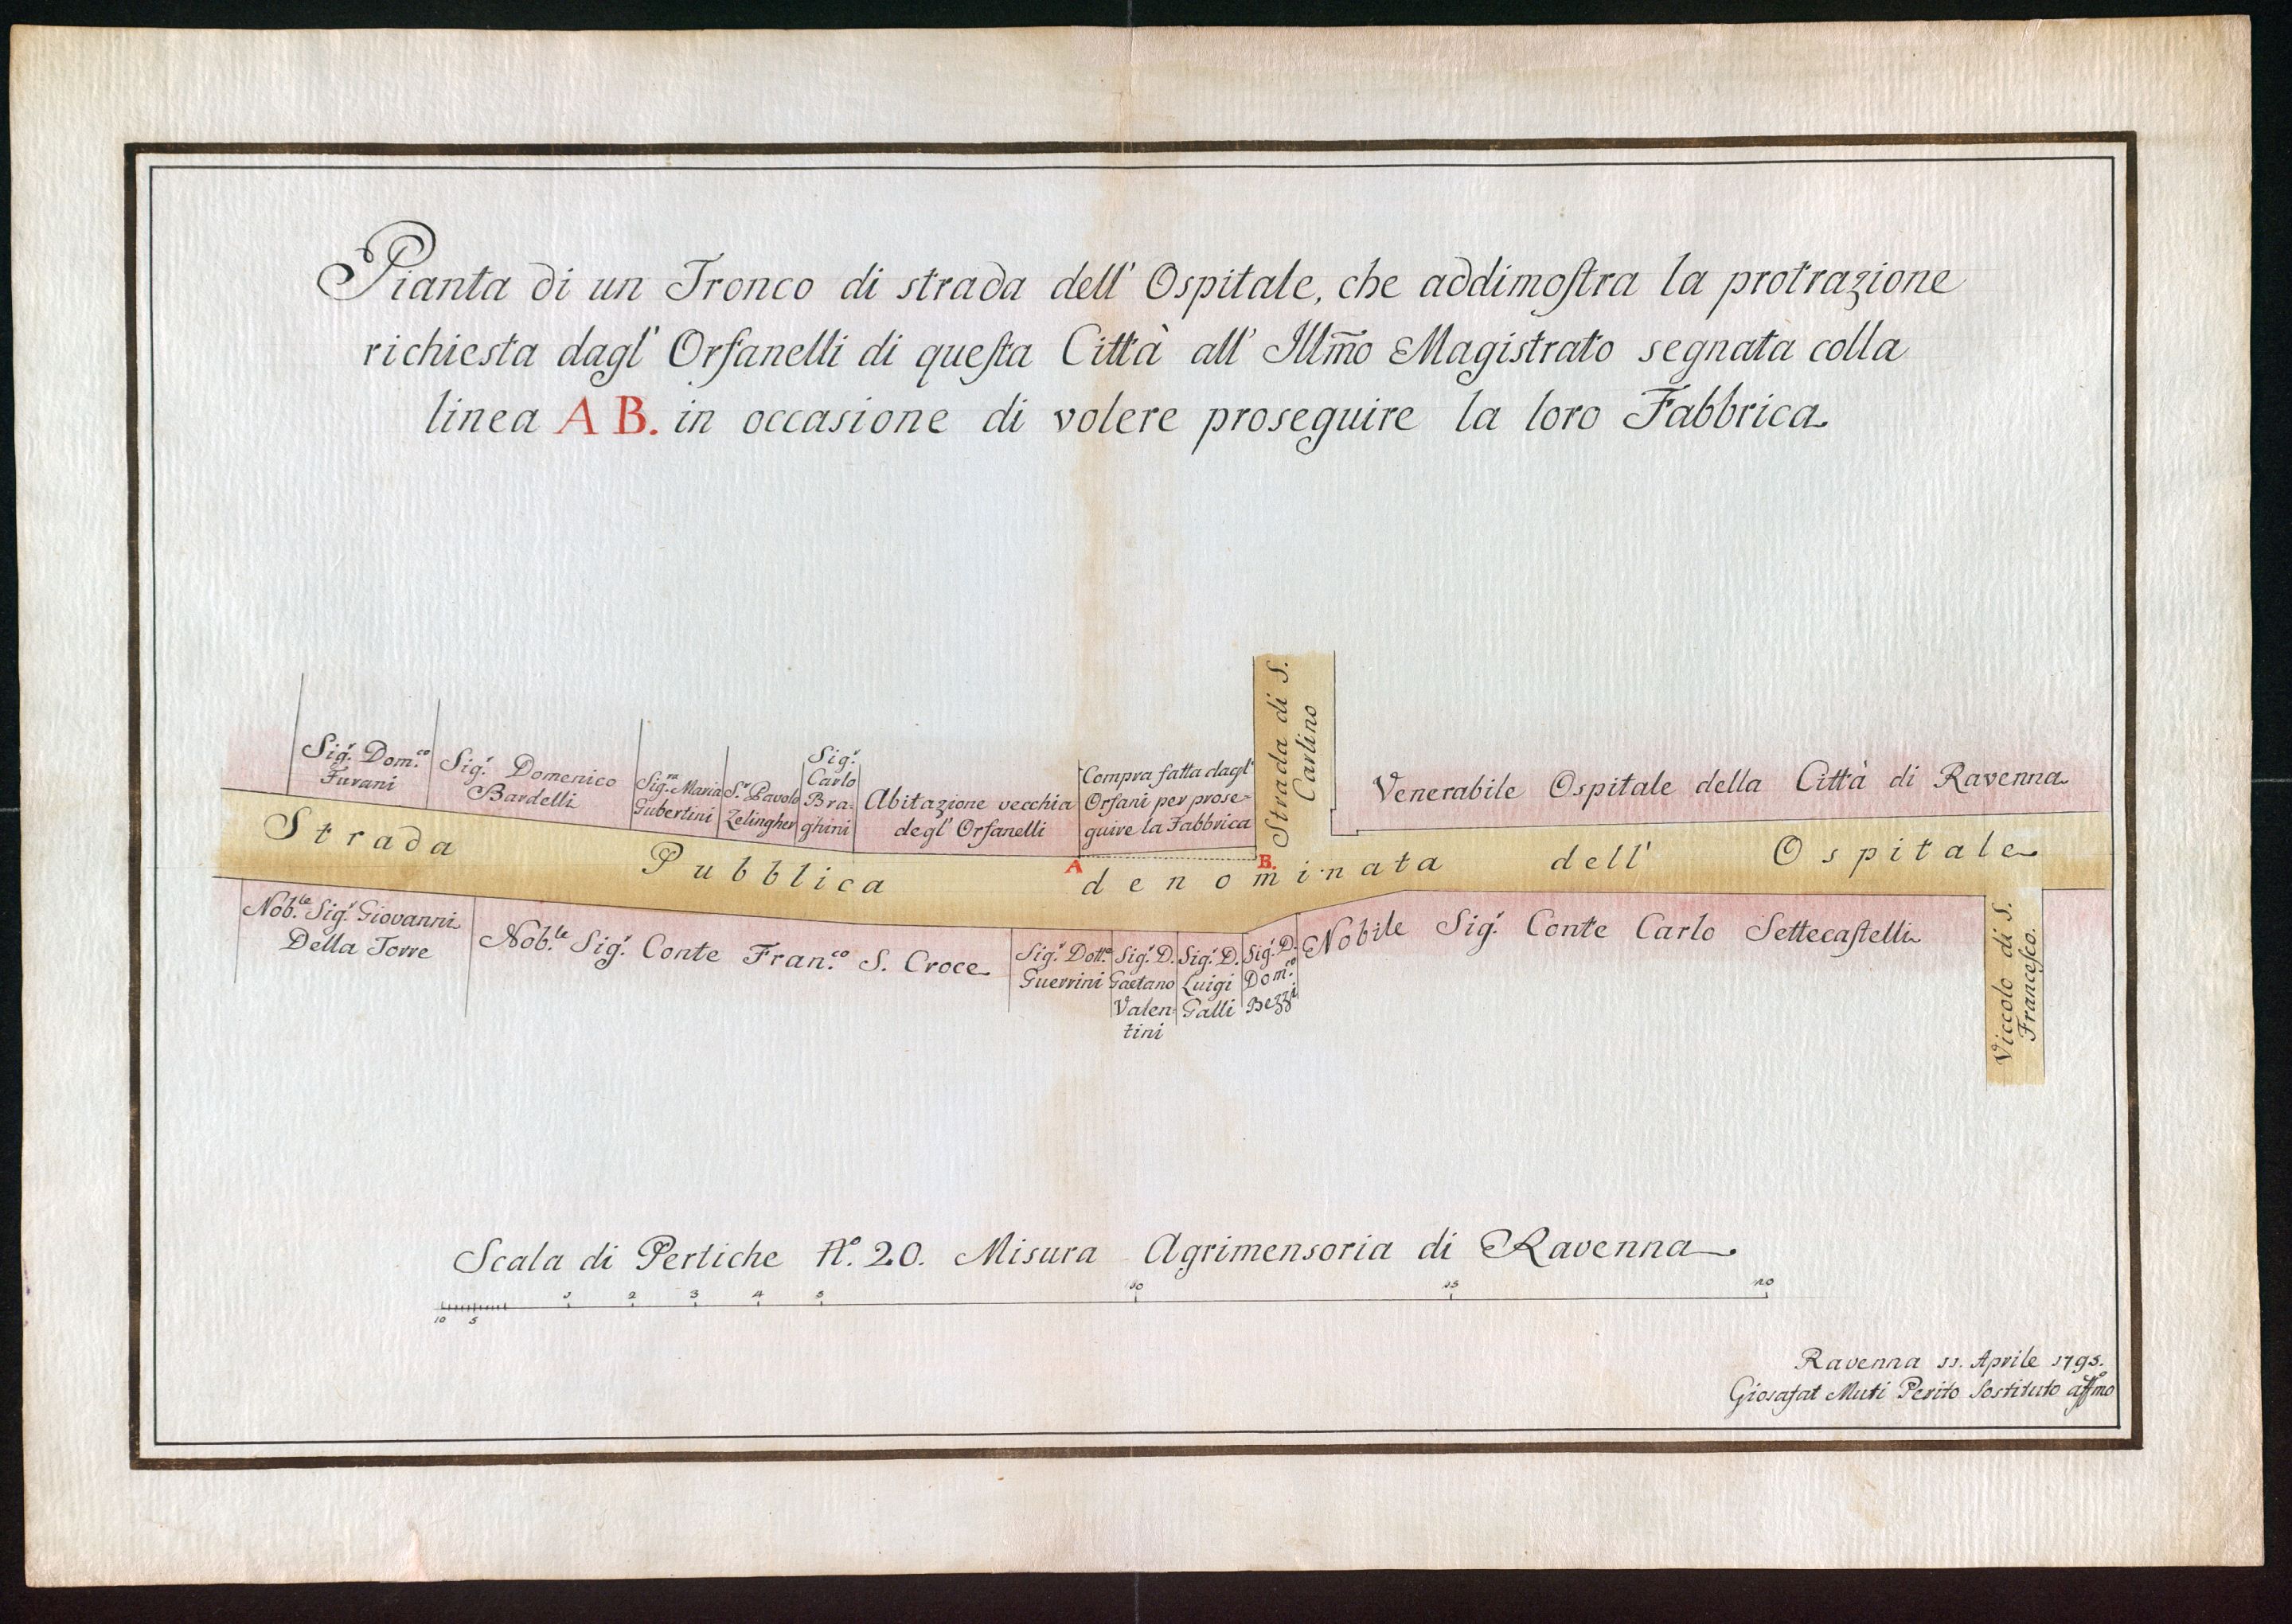 Pianta di un Tronco di strada dell' Ospitale, che addimoſtra la protrazione
richiesta dagl' Orfanelli di queſta Città all' Illm̃o Magistrato segnata colla
linea A B. in occasione di volere proseguire la loro Fabbrica
Sig.r Dom.co
Furani
Sig.r Domenico
Bardelli
Sig.ra Maria
Gubertini
S.r Pavolo
Zelingher
Sig.r
Carlo
Bra-
ghini
Abitazione vecchia
degl' Orfanelli
Compra fatta dagl'
Orfani per prose-
guire la Fabbrica
Strada di S.
Carlino
Venerabile Ospitale della Città di Ravenna
A
B.
Strada Pubblica denominata dell' Ospitale
Nob.le Sig.r Giovanni
Della Torre
Nob.le Sig.r Conte Fran.co S. Croce
Sig.r Dott.e
Guerrini
Sig.r D.
Gaetano
Valen-
tini
Sig.r D.
Luigi
Galli
Sig.r D.
Dom.co
Bezzi
Nobile Sig.r Conte Carlo Settecaſtelli
Viccolo di S.
Franceſco.
Scala di Pertiche N.o 20. Misura Agrimensoria di Ravenna
10 5 1 2 3 4 5 10 15 20
Ravenna 11. Aprile 1795.
Giosafat Muti Perito Sostituto